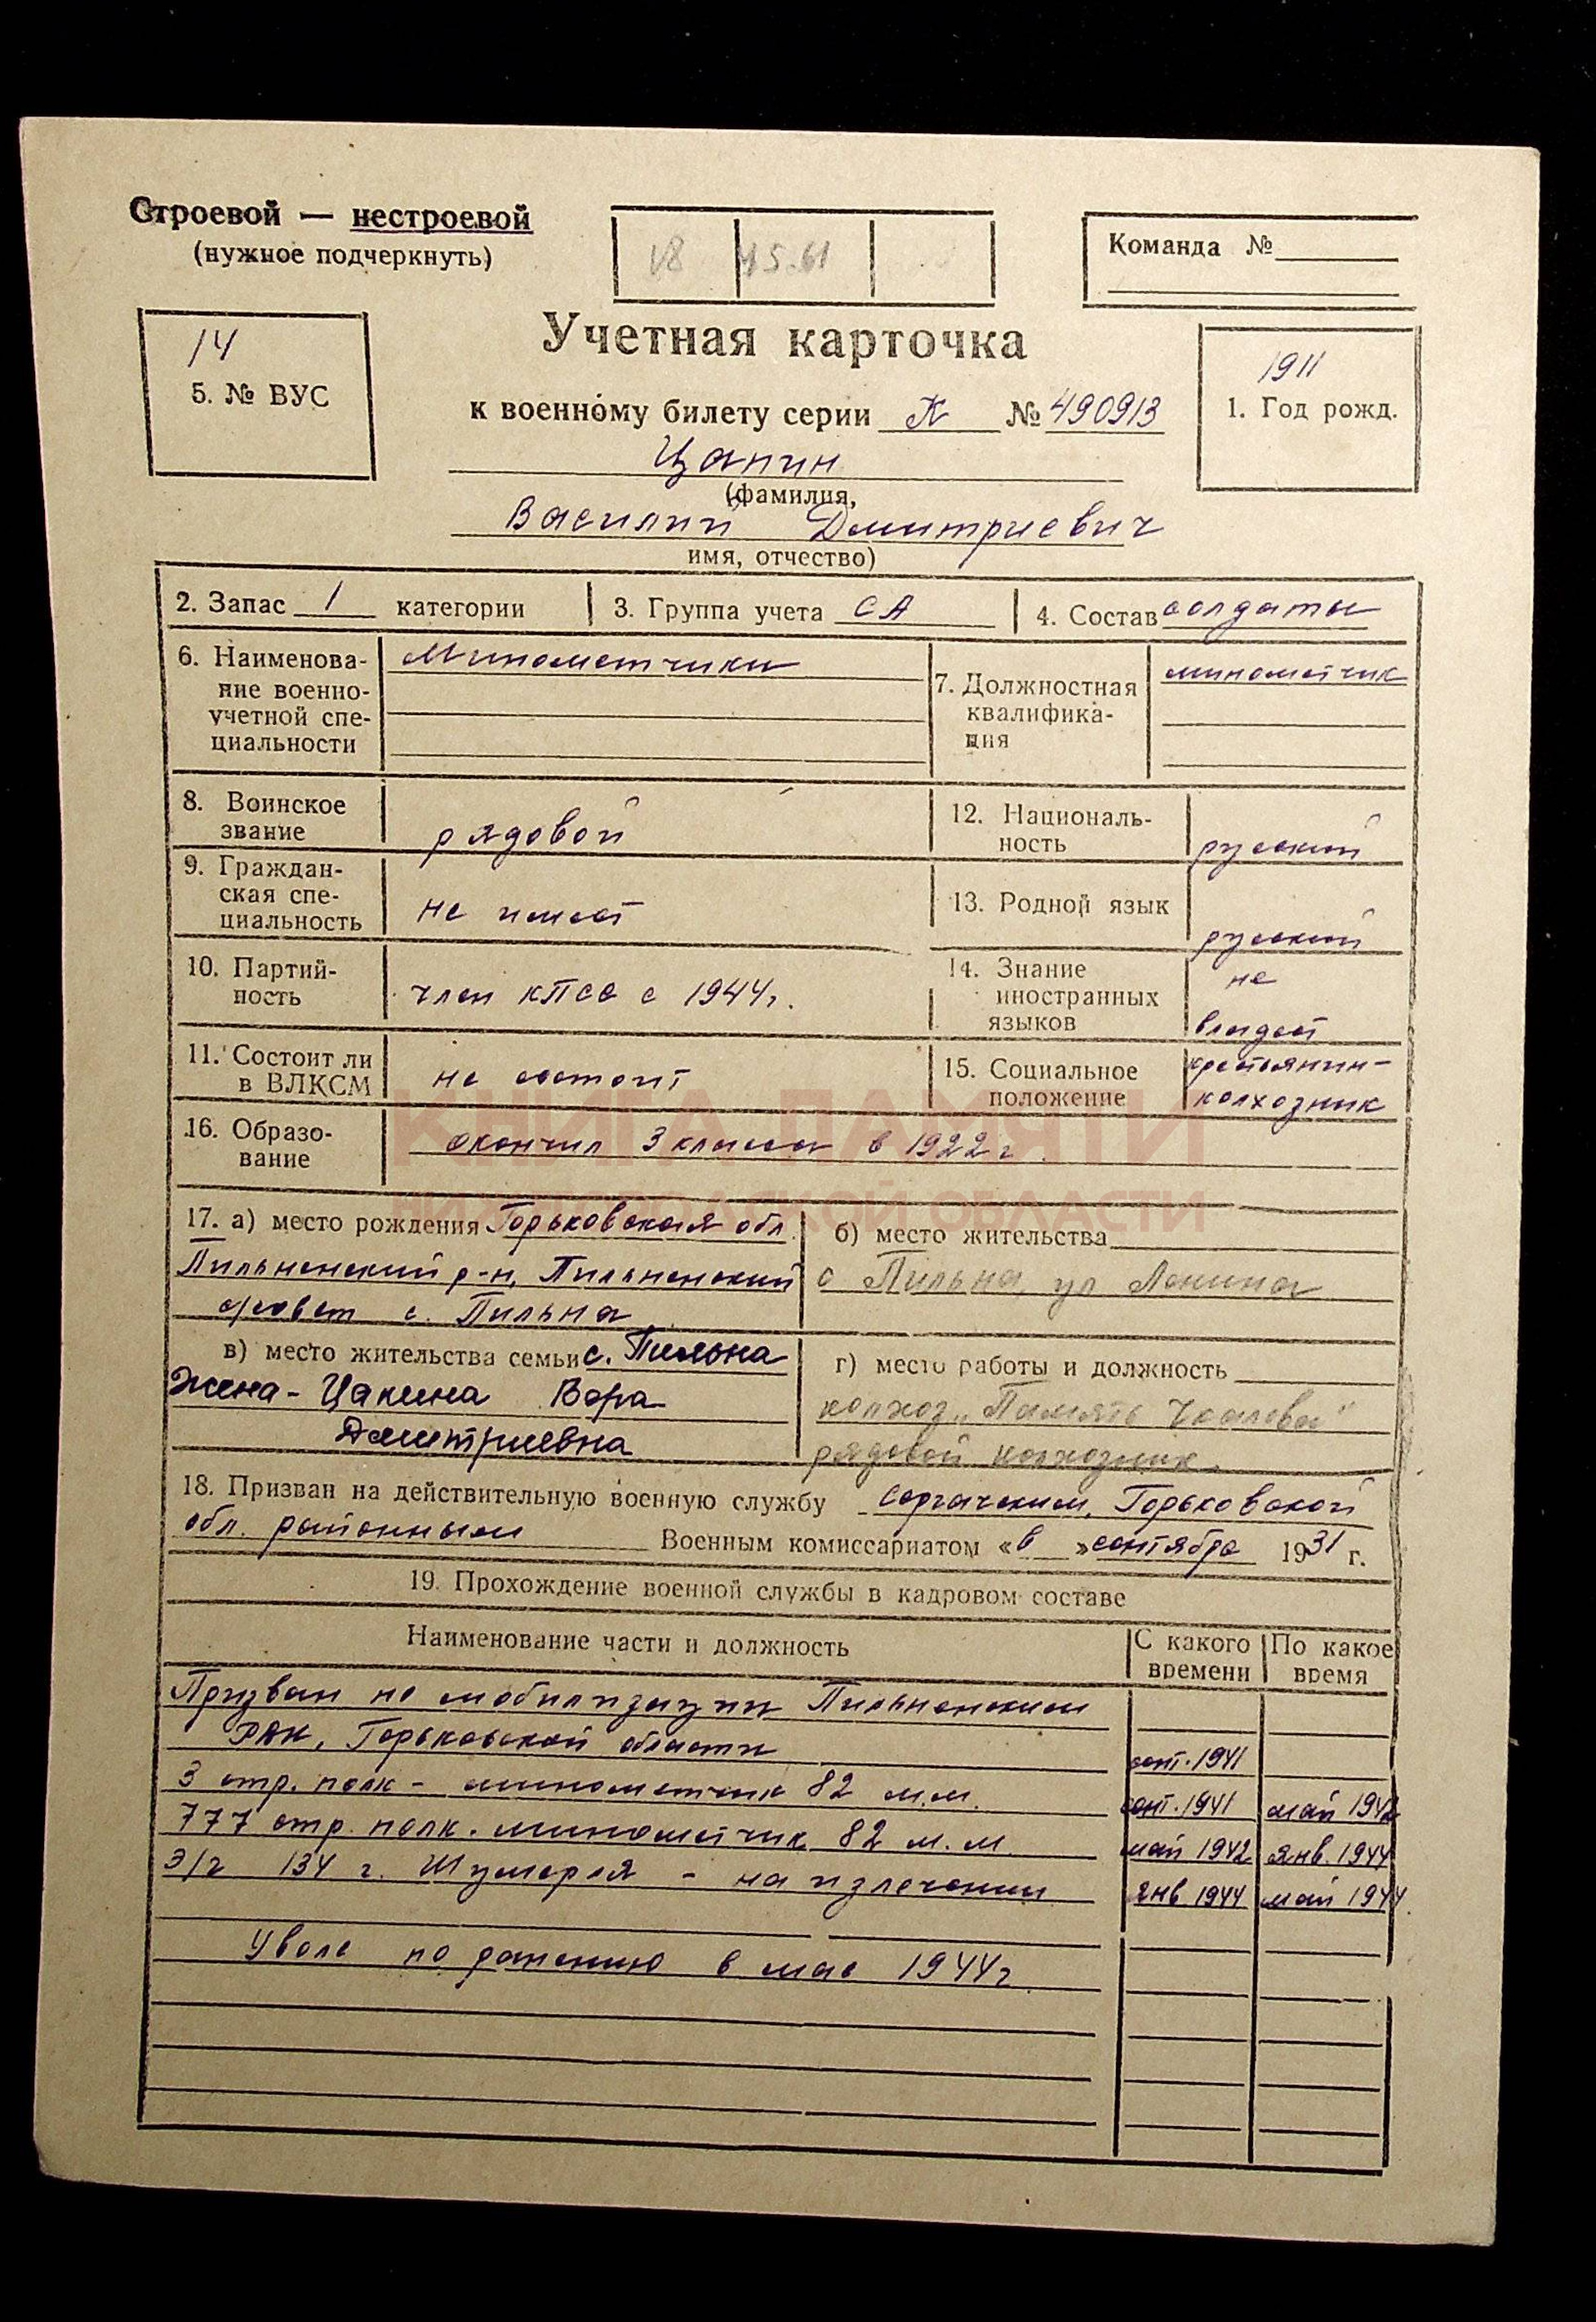 Строевой — нестроевой
(нужное подчеркнуть)
Команда №
14
5. № ВУС
Учетная карточка
к военному билету серии К № 490913
1911
1. Год рожд.
Цапин
(фамилия,
Василий Дмитриевич
имя, отчество)
2. Запас 1 категории
3. Группа учета СА
4. Состав солдаты
6. Наименова-
ние военно-
учетной спе-
циальности
Минометчики
7. Должностная
квалифика-
ция
минометчик
8. Воинское
звание
рядовой
12. Националь-
ность
русский
9. Граждан-
ская спе-
циальность
не имеет
13. Родной язык
русский
10. Партий-
ность
член КПСС с 1944г.
14. Знание
иностранных
языков
не
владеет
11. Состоит ли
в ВЛКСМ
не состоит
15. Социальное
положение
крестьянин-
колхозник
16. Образо-
вание
окончил 3 класса в 1922 г.
КНИГА ПАМЯТИ
НИЖЕГОРОДСКОЙ ОБЛАСТИ
17. а) место рождения Горьковская обл.
Пильненский р-н, Пильненский
с/совет с. Пильна
б) место жительства
с Пильна, ул Ленина
в) место жительства семьи с. Пильна
Жена - Цапина Вера
Дмитриевна
г) место работы и должность
колхоз „Память Чкалова"
рядовой колхозник.
18. Призван на действительную военную службу Сергачским, Горьковской
обл. районным Военным комиссариатом «в » сентябре 1931 г.
19. Прохождение военной службы в кадровом составе
Наименование части и должность
С какого
времени
По какое
время
Призван по мобилизации Пильненским
РВК, Горьковской области сент. 1941
3 стр. полк - минометчик 82 м.м. сент. 1941 май 1942
777 стр. полк. минометчик 82 м.м май 1942 янв. 1944
Э/г 134 г. Шумерля - на излечении янв 1944 май 1944.
Увол. по ранению в мае 1944г.